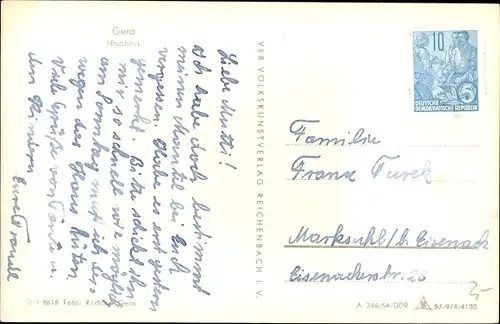 Gera
Hochhaus
Liebe Mutti!
Ich habe doch bestimmt
meinen Mantel bei Euch
vergessen. Habe es erst gestern
gemerkt. Bitte schickt ihn
mir so schnell wie möglich
am Sonntag muß ich
wegen das Haus hüten.
Viele Grüße von Tante u.
den Kleineren
Eure Traudl
VEB VOLKSKUNSTVERLAG REICHENBACH I. V.
10
5
DEUTSCHE
DEMOKRATISCHE REPUBLIK
Familie
Franz Turek
Marksuhl/b. Eisenach
Eisenacherstr. 26
G 1 8618 Foto: Gera
A 246/54-DDR 57/974/4100